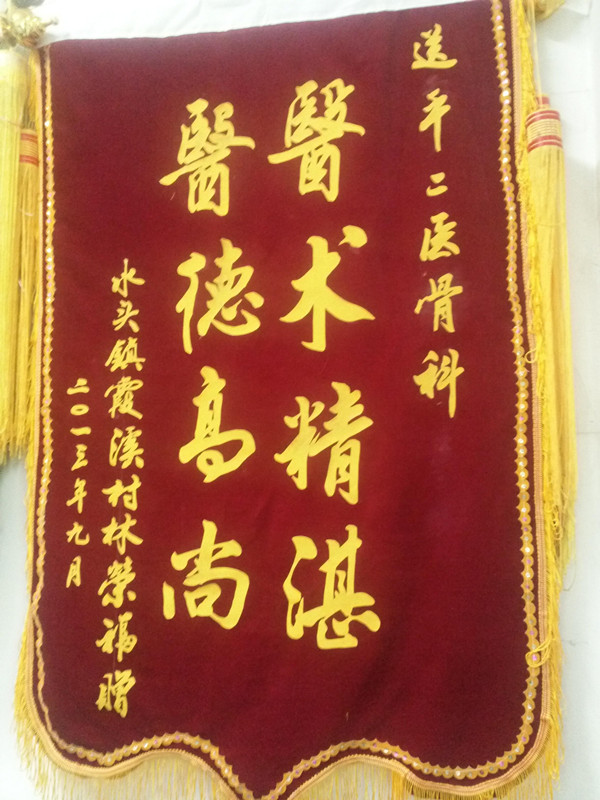 送平二医骨科
醫术精湛
醫德高尚
水头鎮霞溪村林榮福赠
二〇一三年九月